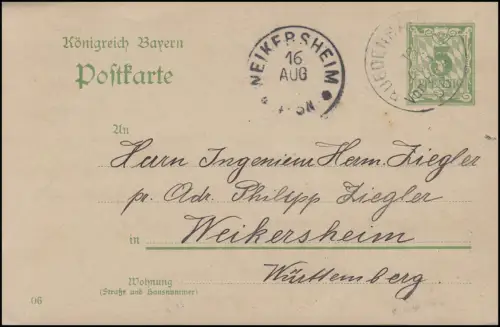 Königreich Bayern
Postkarte
WEIKERSHEIM
16
AUG
5
PFENNIG
An
Herrn Ingenieur Herm. Ziegler
pr. Adr. Philipp Ziegler
in Weikersheim
Württemberg.
Wohnung
(Straße und Hausnummer)
06